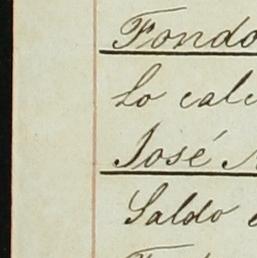 Fondo
Lo calc
José
Saldo